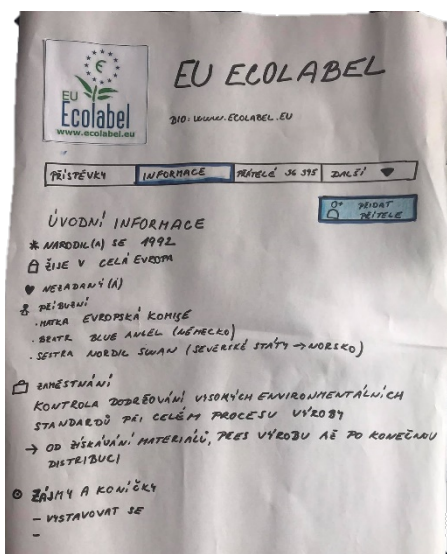 EU
Ecolabel
www.ecolabel.eu
EU ECOLABEL
BIO: www.ECOLABEL.EU
PŘÍSTĚVKY
INFORMACE
PŘÁTELÉ 36 395
DALŠÍ
PŘIDAT
PŘÍTELE
ÚVODNÍ INFORMACE
NARODIL(A) SE 1992
ŽIJE V CELÁ EVROPA
NEZADANÝ(Á)
PŘÍBUZNÍ
• MATKA EVROPSKÁ KOMISE
• BRATR BLUE ANGEL (NĚMECKO)
• SESTRA NORDIC SWAN (SEVERSKÉ STÁTY → NORSKO)
ZAMĚSTNÁNÍ
KONTROLA DODRŽOVÁNÍ VYSOKÝCH ENVIRONMENTÁLNÍCH
STANDARDŮ PŘI CELÉM PROCESU VÝROBY
→ OD ZÍSKÁVÁNÍ MATERIÁLŮ, PŘES VÝROBU AŽ PO KONEČNOU
DISTRIBUCI
ZÁJMY A KONÍČKY
- VYSTAVOVAT SE
-